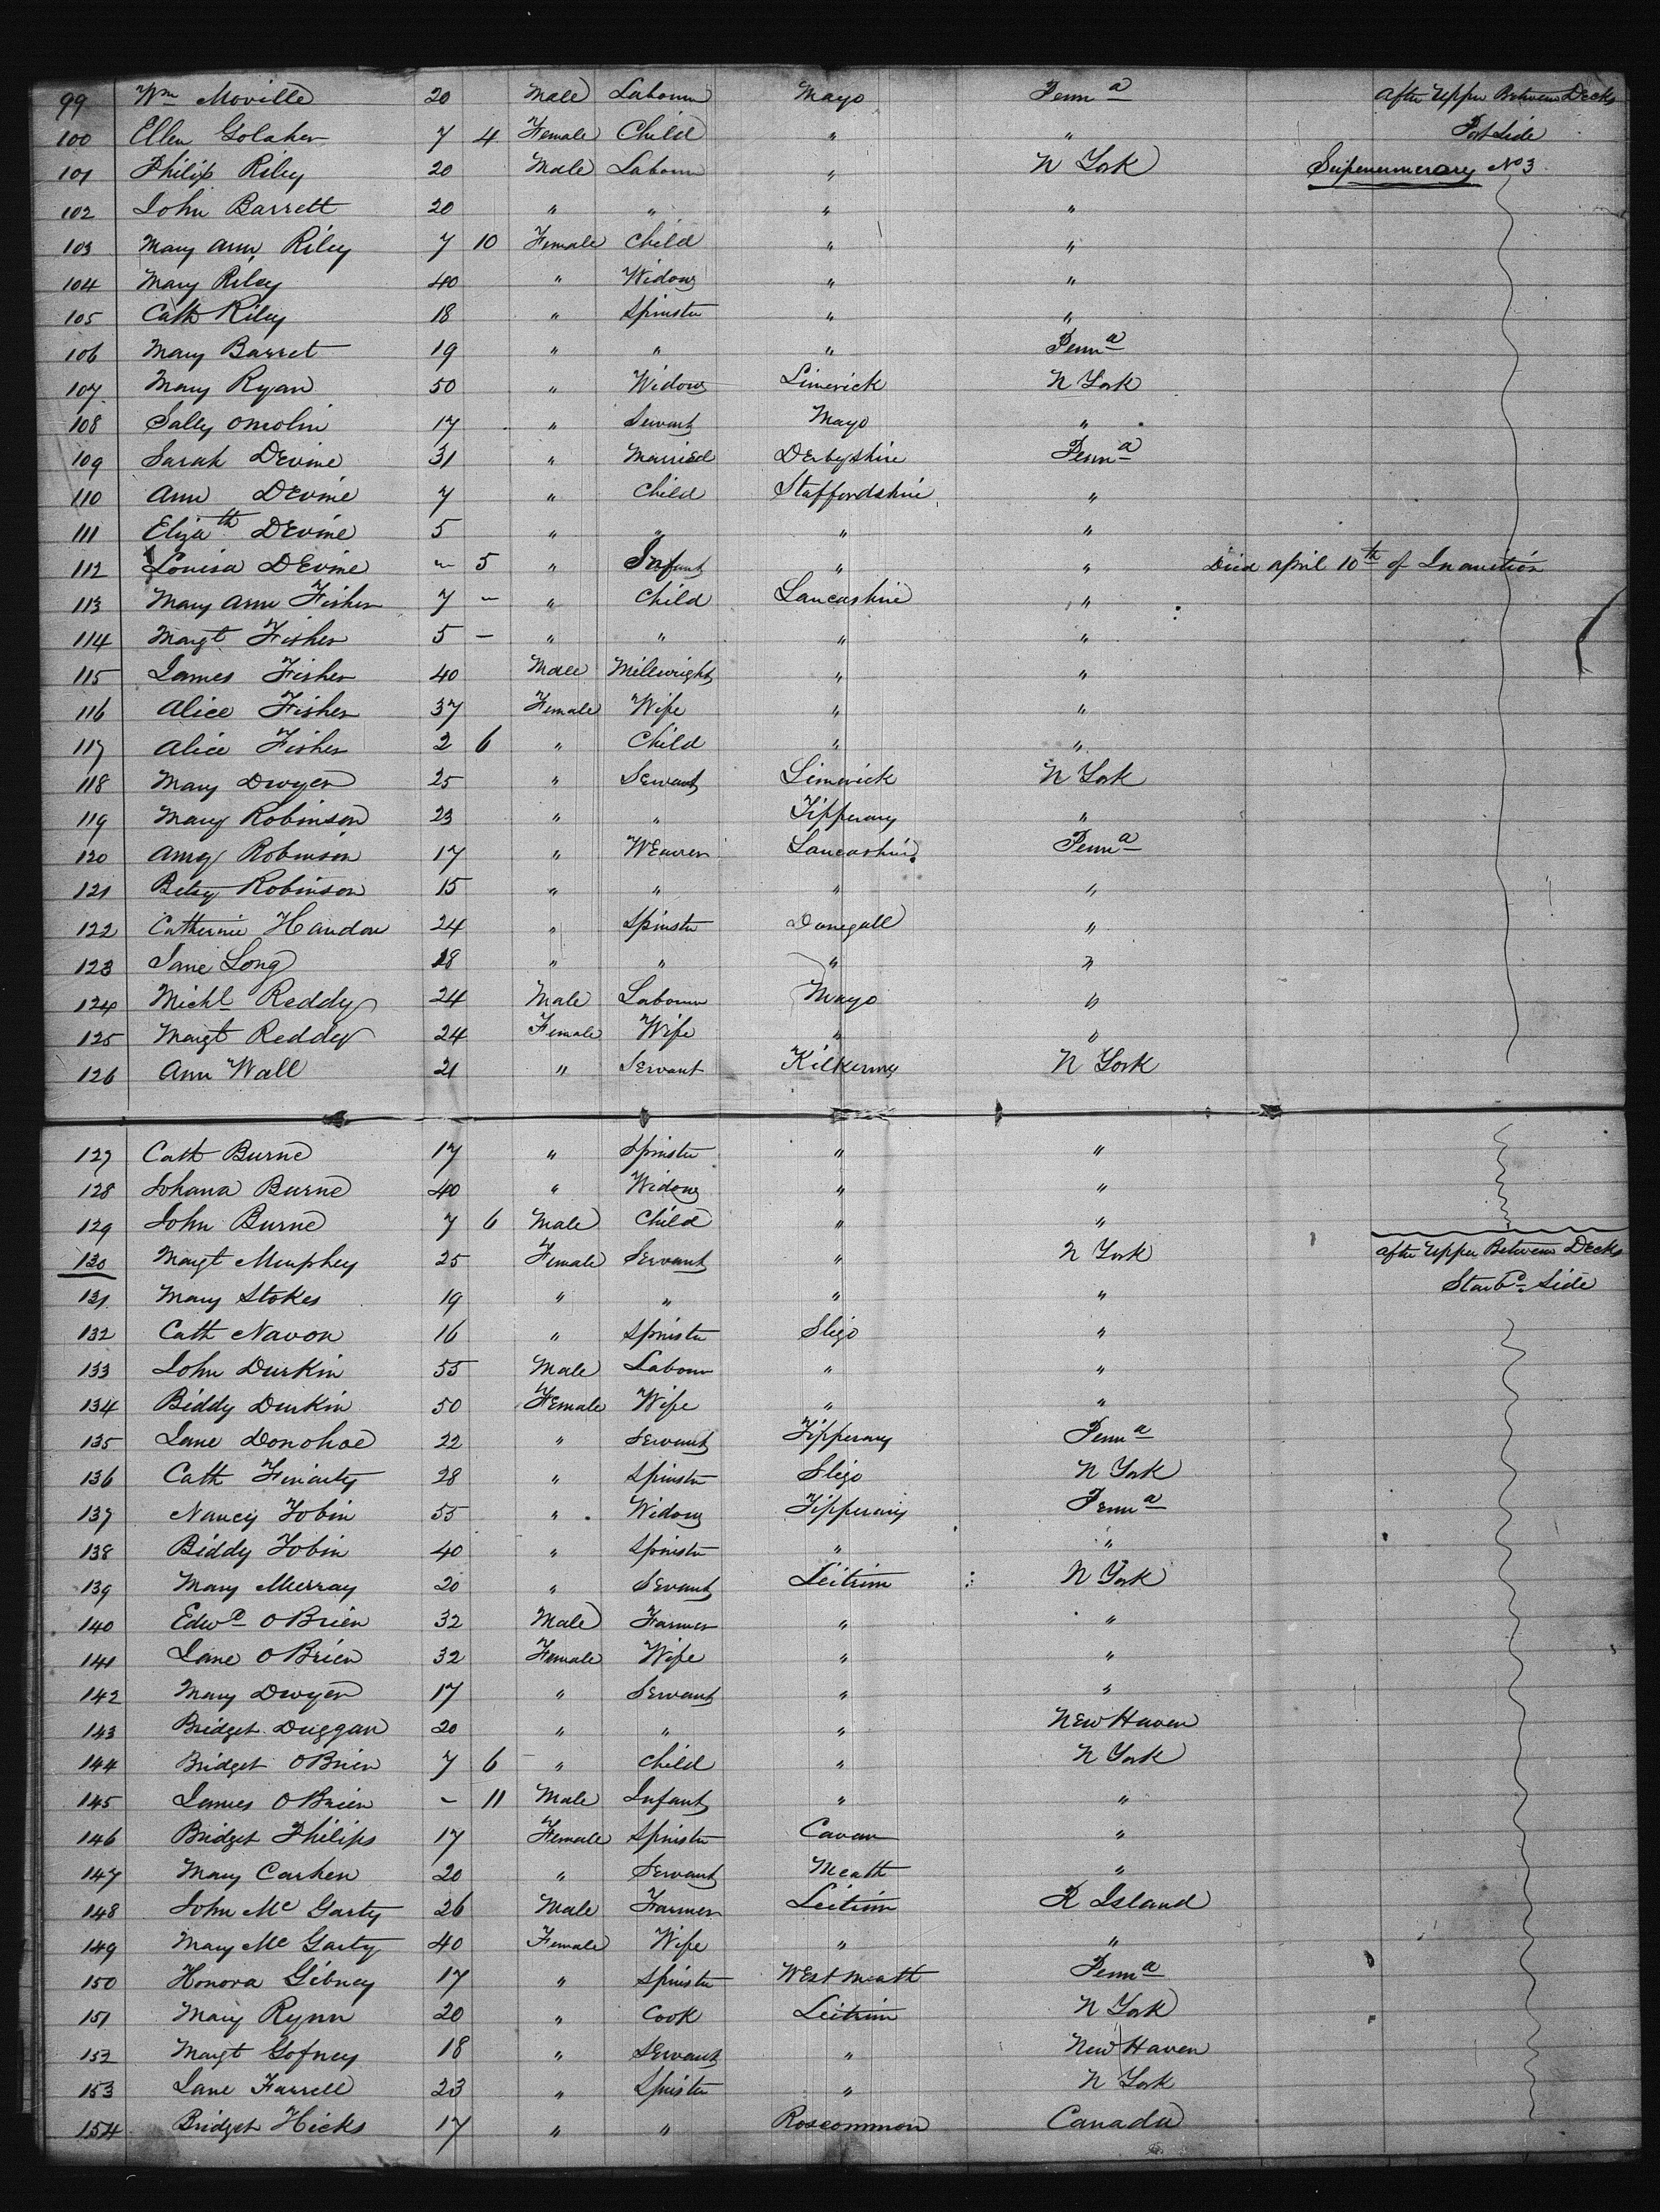 99 Wm Moville 20 Male Labourer Mayo Penna After Upper Between Decks
100 Ellen Golaher 7 4 Female Child " " Port Side
101 Philip Riley 20 Male Labourer " N York Supernumerary No 3
102 John Barrett 20 " " " "
103 Mary Ann Riley 7 10 Female Child " "
104 Mary Riley 40 " Widow " "
105 Cath Riley 18 " Spinster " "
106 Mary Barret 19 " " " Penna
107 Mary Ryan 50 " Widow Limerick N York
108 Sally Omolin 17 " Servant Mayo "
109 Sarah Devine 31 " Married Derbyshire Penna
110 Ann Devine 7 " Child Staffordshire "
111 Elizath Devine 5 " " " "
112 Louisa Devine ~ 5 " Infant " " Died April 10th of Inanition
113 Mary Ann Fisher 7 - " Child Lancashire "
114 Margt Fisher 5 - " " " "
115 James Fisher 40 Male Millwright " "
116 Alice Fisher 37 Female Wife " "
117 Alice Fisher 2 6 " Child " "
118 Mary Dwyer 25 " Servant Limerick N York
119 Mary Robinson 23 " " Tipperary "
120 Amy Robinson 17 " Weaver Lancashire Penna
121 Betsy Robinson 15 " " " "
122 Catherine Handon 24 " Spinster Donegall "
123 Jane Long 18 " " " "
124 Michl Reddy 24 Male Labourer Mayo "
125 Margt Reddy 24 Female Wife " "
126 Ann Wall 21 " Servant Kilkenny N York
127 Cath Burne 17 " Spinster " "
128 Johana Burne 40 " Widow " "
129 John Burne 7 6 Male Child " "
130 Margt Murphey 25 Female Servant " N York After Upper Between Decks
131 Mary Stokes 19 " " " " Starbd Side
132 Cath Navon 16 " Spinster Sligo "
133 John Durkin 55 Male Labour " "
134 Biddy Durkin 50 Female Wife " "
135 Jane Donohoe 22 " Servant Tipperary Penna
136 Cath Finarty 28 " Spinster Sligo N York
137 Nancy Tobin 55 " Widow Tipperary Penna
138 Biddy Tobin 40 " Spinster " "
139 Mary Murray 20 " Servant Leitrim N York
140 Edwd O Brien 32 Male Farmer " "
141 Jane O Brien 32 Female Wife " "
142 Mary Dwyer 17 " Servant " "
143 Bridget Duggan 20 " " " New Haven
144 Bridget O Brien 7 6 " Child " N York
145 James O Brien ~ 11 Male Infant " "
146 Bridget Philips 17 Female Spinster Cavan "
147 Mary Carhen 20 " Servant Meath "
148 John Mc Garty 26 Male Farmer Leitrim R Island
149 Mary Mc Garty 40 Female Wife " "
150 Honora Gibney 17 " Spinster West Meath Penna
151 Mary Rynn 20 " Cook Leitrim N York
152 Margt Gofney 18 " Servant " New Haven
153 Jane Farrell 23 " Spinster " N York
154 Bridget Hicks 17 " " Roscommon Canada